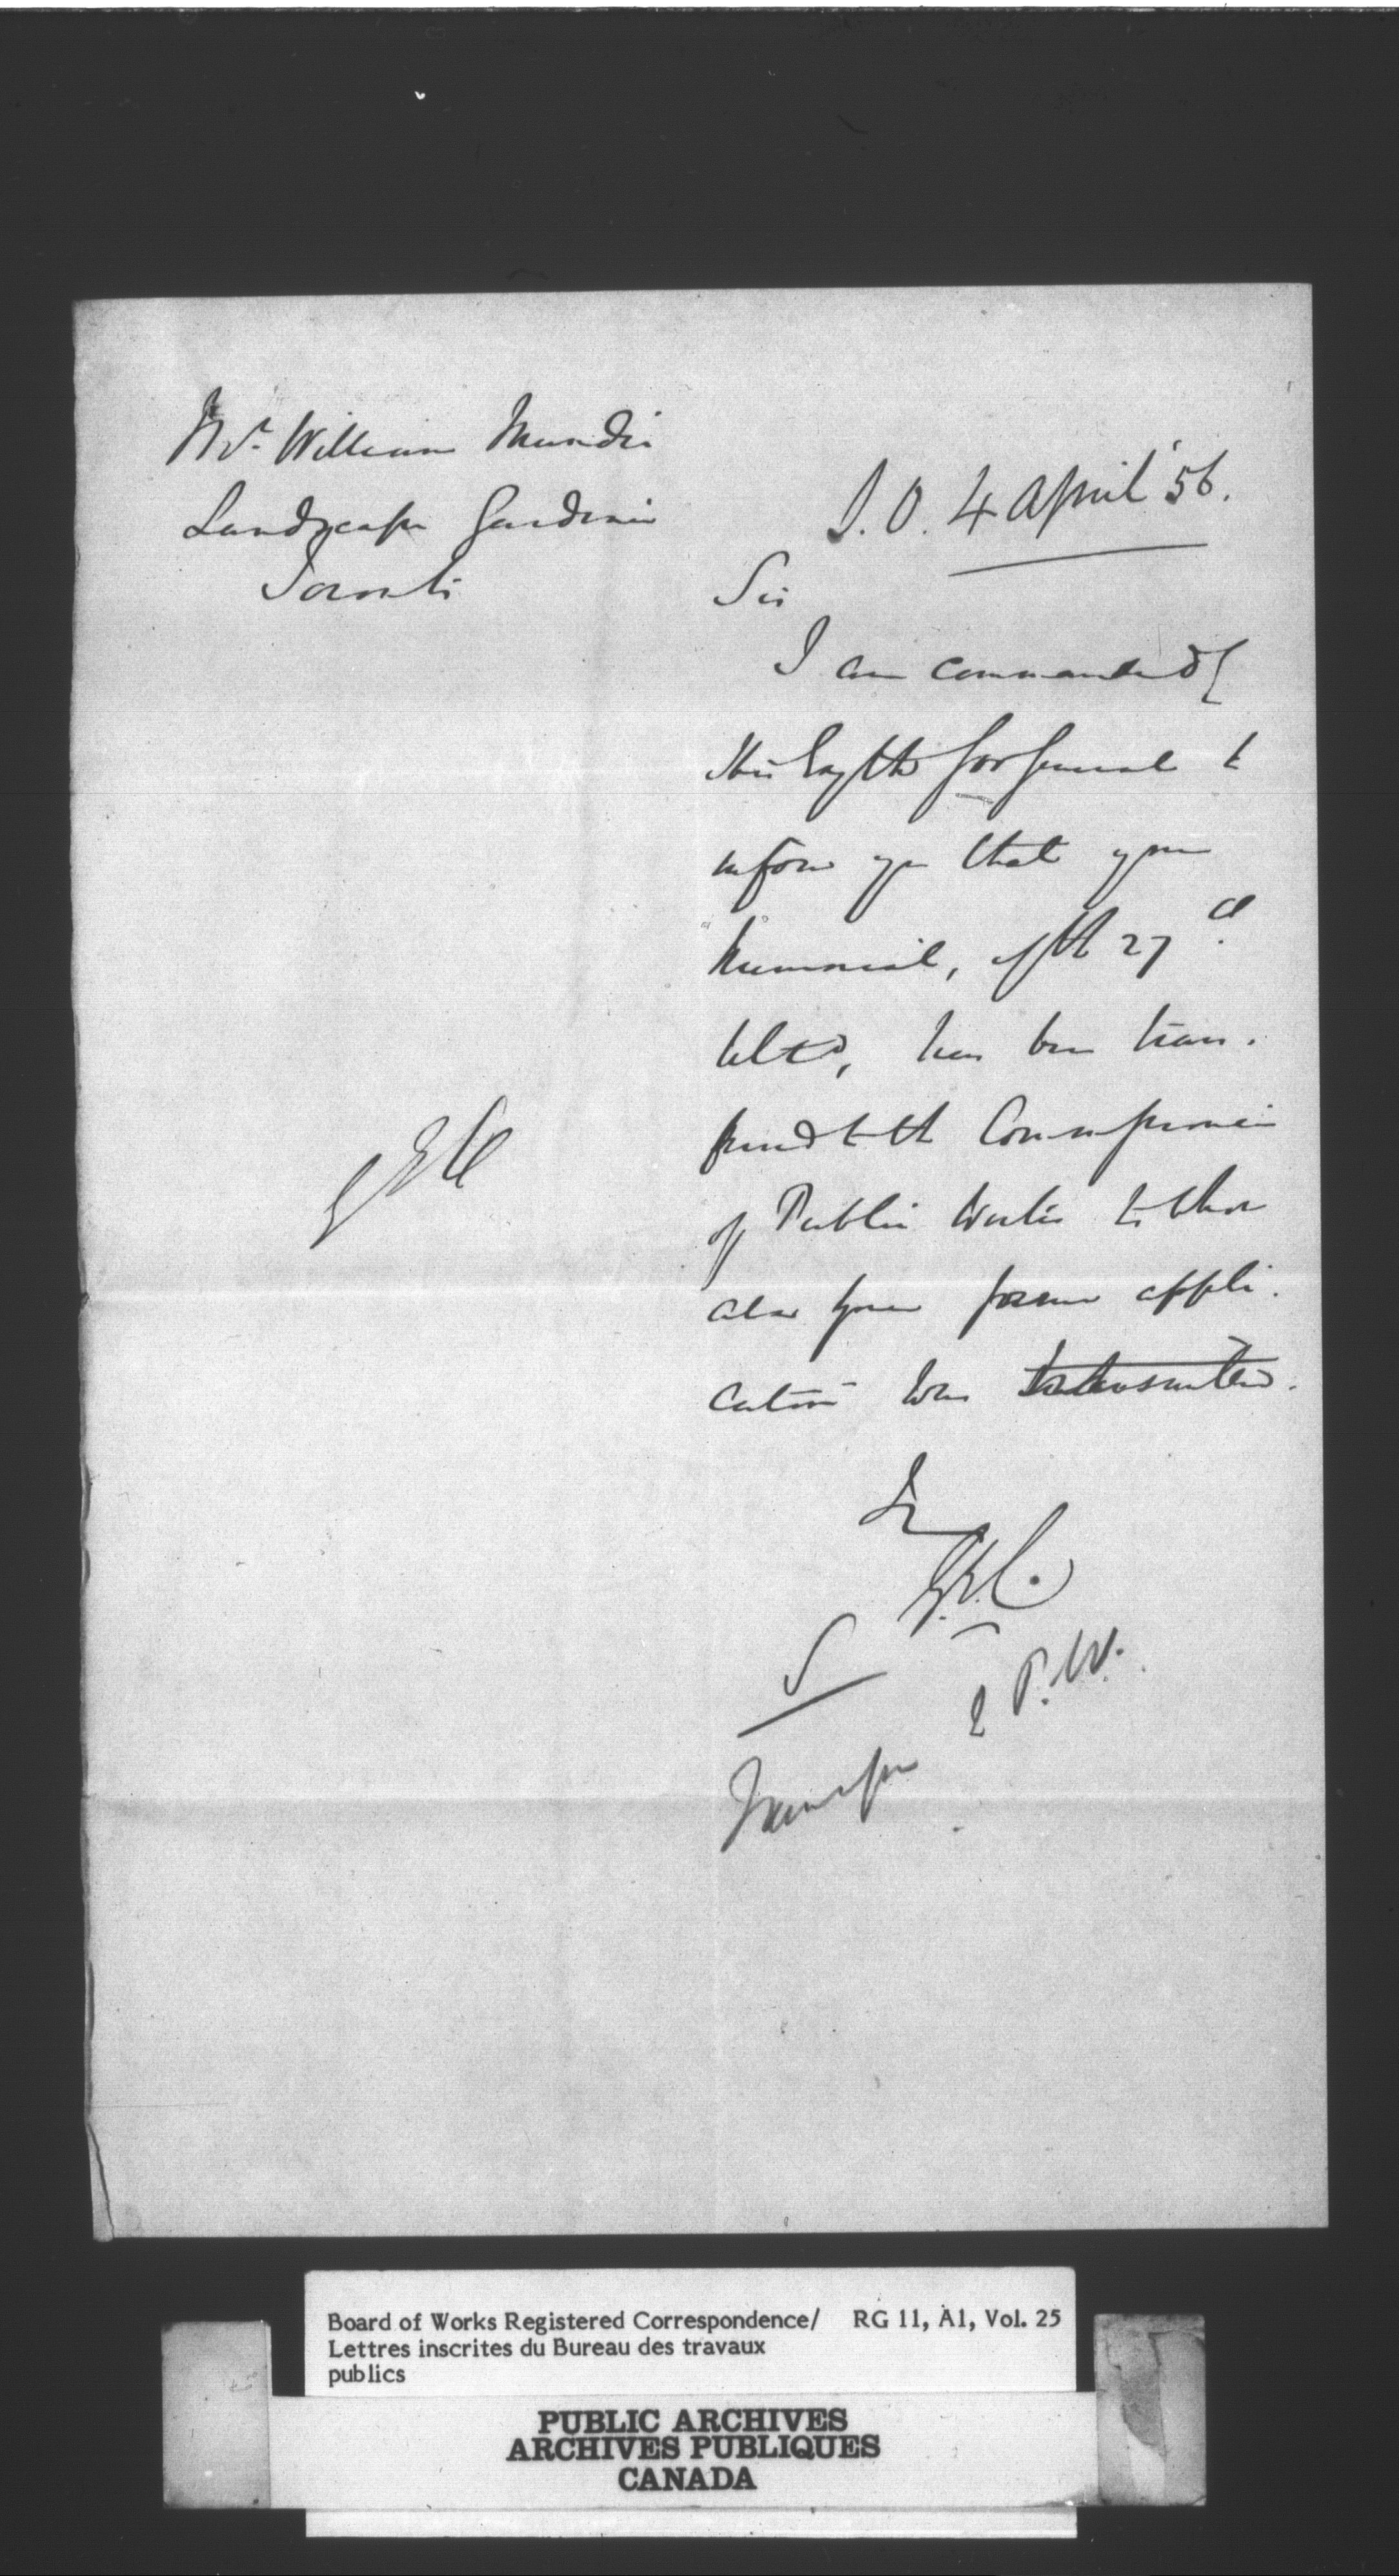 Mr. William Mundie
Landscape Gardener
Toronto
S. O. 4 April '56.
Sir
I am commanded
His Gov General to
inform you that your
Memorial, of the 27
Ulto, has been trans.
ferred to the Commissioner
of Public Works to whom
also your former appli.
cation was transmitted.
P.W.
Transfer
Board of Works Registered Correspondence/ RG 11, A1, Vol. 25
Lettres inscrites du Bureau des travaux
publics
PUBLIC ARCHIVES
ARCHIVES PUBLIQUES
CANADA